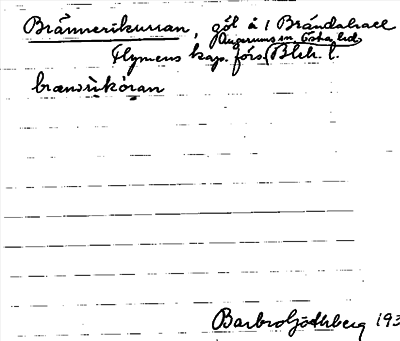 Brännerikurran, göl å 1 Brändahall
Augerums sn, Östra hd
Flymens kap. förs. Blek. l.
Barbro Göthberg 193